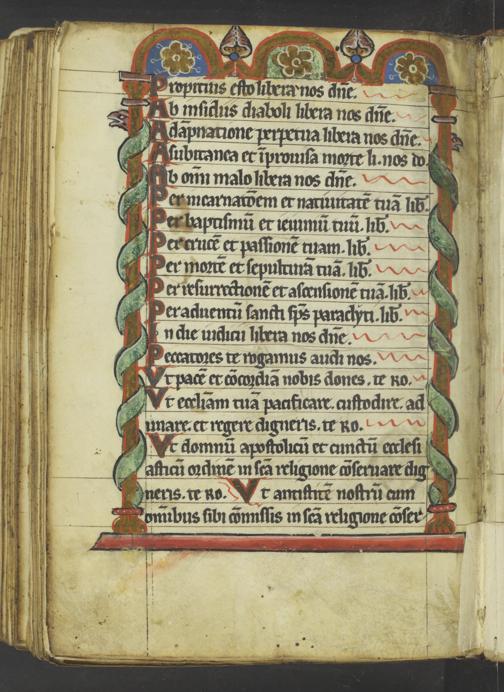 Propitius esto libera nos dñe.
Ab insidiis diaboli libera nos dñe.
A dãpnatione perpetua libera nos dñe.
A subitanea et ĩprouisa morte li. nos do
Ab omĩ malo libera nos dñe.
Per incarnatõem et natiuitatẽ tuã lib̃.
Per baptismũ et ieiuniũ tuũ. lib̃.
Per crucẽ et passionẽ tuam. lib̃.
Per mortẽ et sepulturã tuã. lib̃.
Per resurrectionẽ et ascensionẽ tuã. lib̃.
Per aduentũ sancti sp̃s paraclyti. lib̃.
In die iudicii libera nos dñe.
Peccatores te rogamus audi nos.
Vt pacẽ et cõcordiã nobis dones. te ro.
Vt eccl̃iam tuã pacificare. custodire. ad
unare. et regere digneris. te ro.
Vt domnũ apostolicũ et cunctũ ecclesi
asticũ ordinẽ in sc̃a religione cõseruare dig
neris. te ro. Vt antistitẽ nostrũ cum
omĩbus sibi cõmissis in sc̃a religione cõser